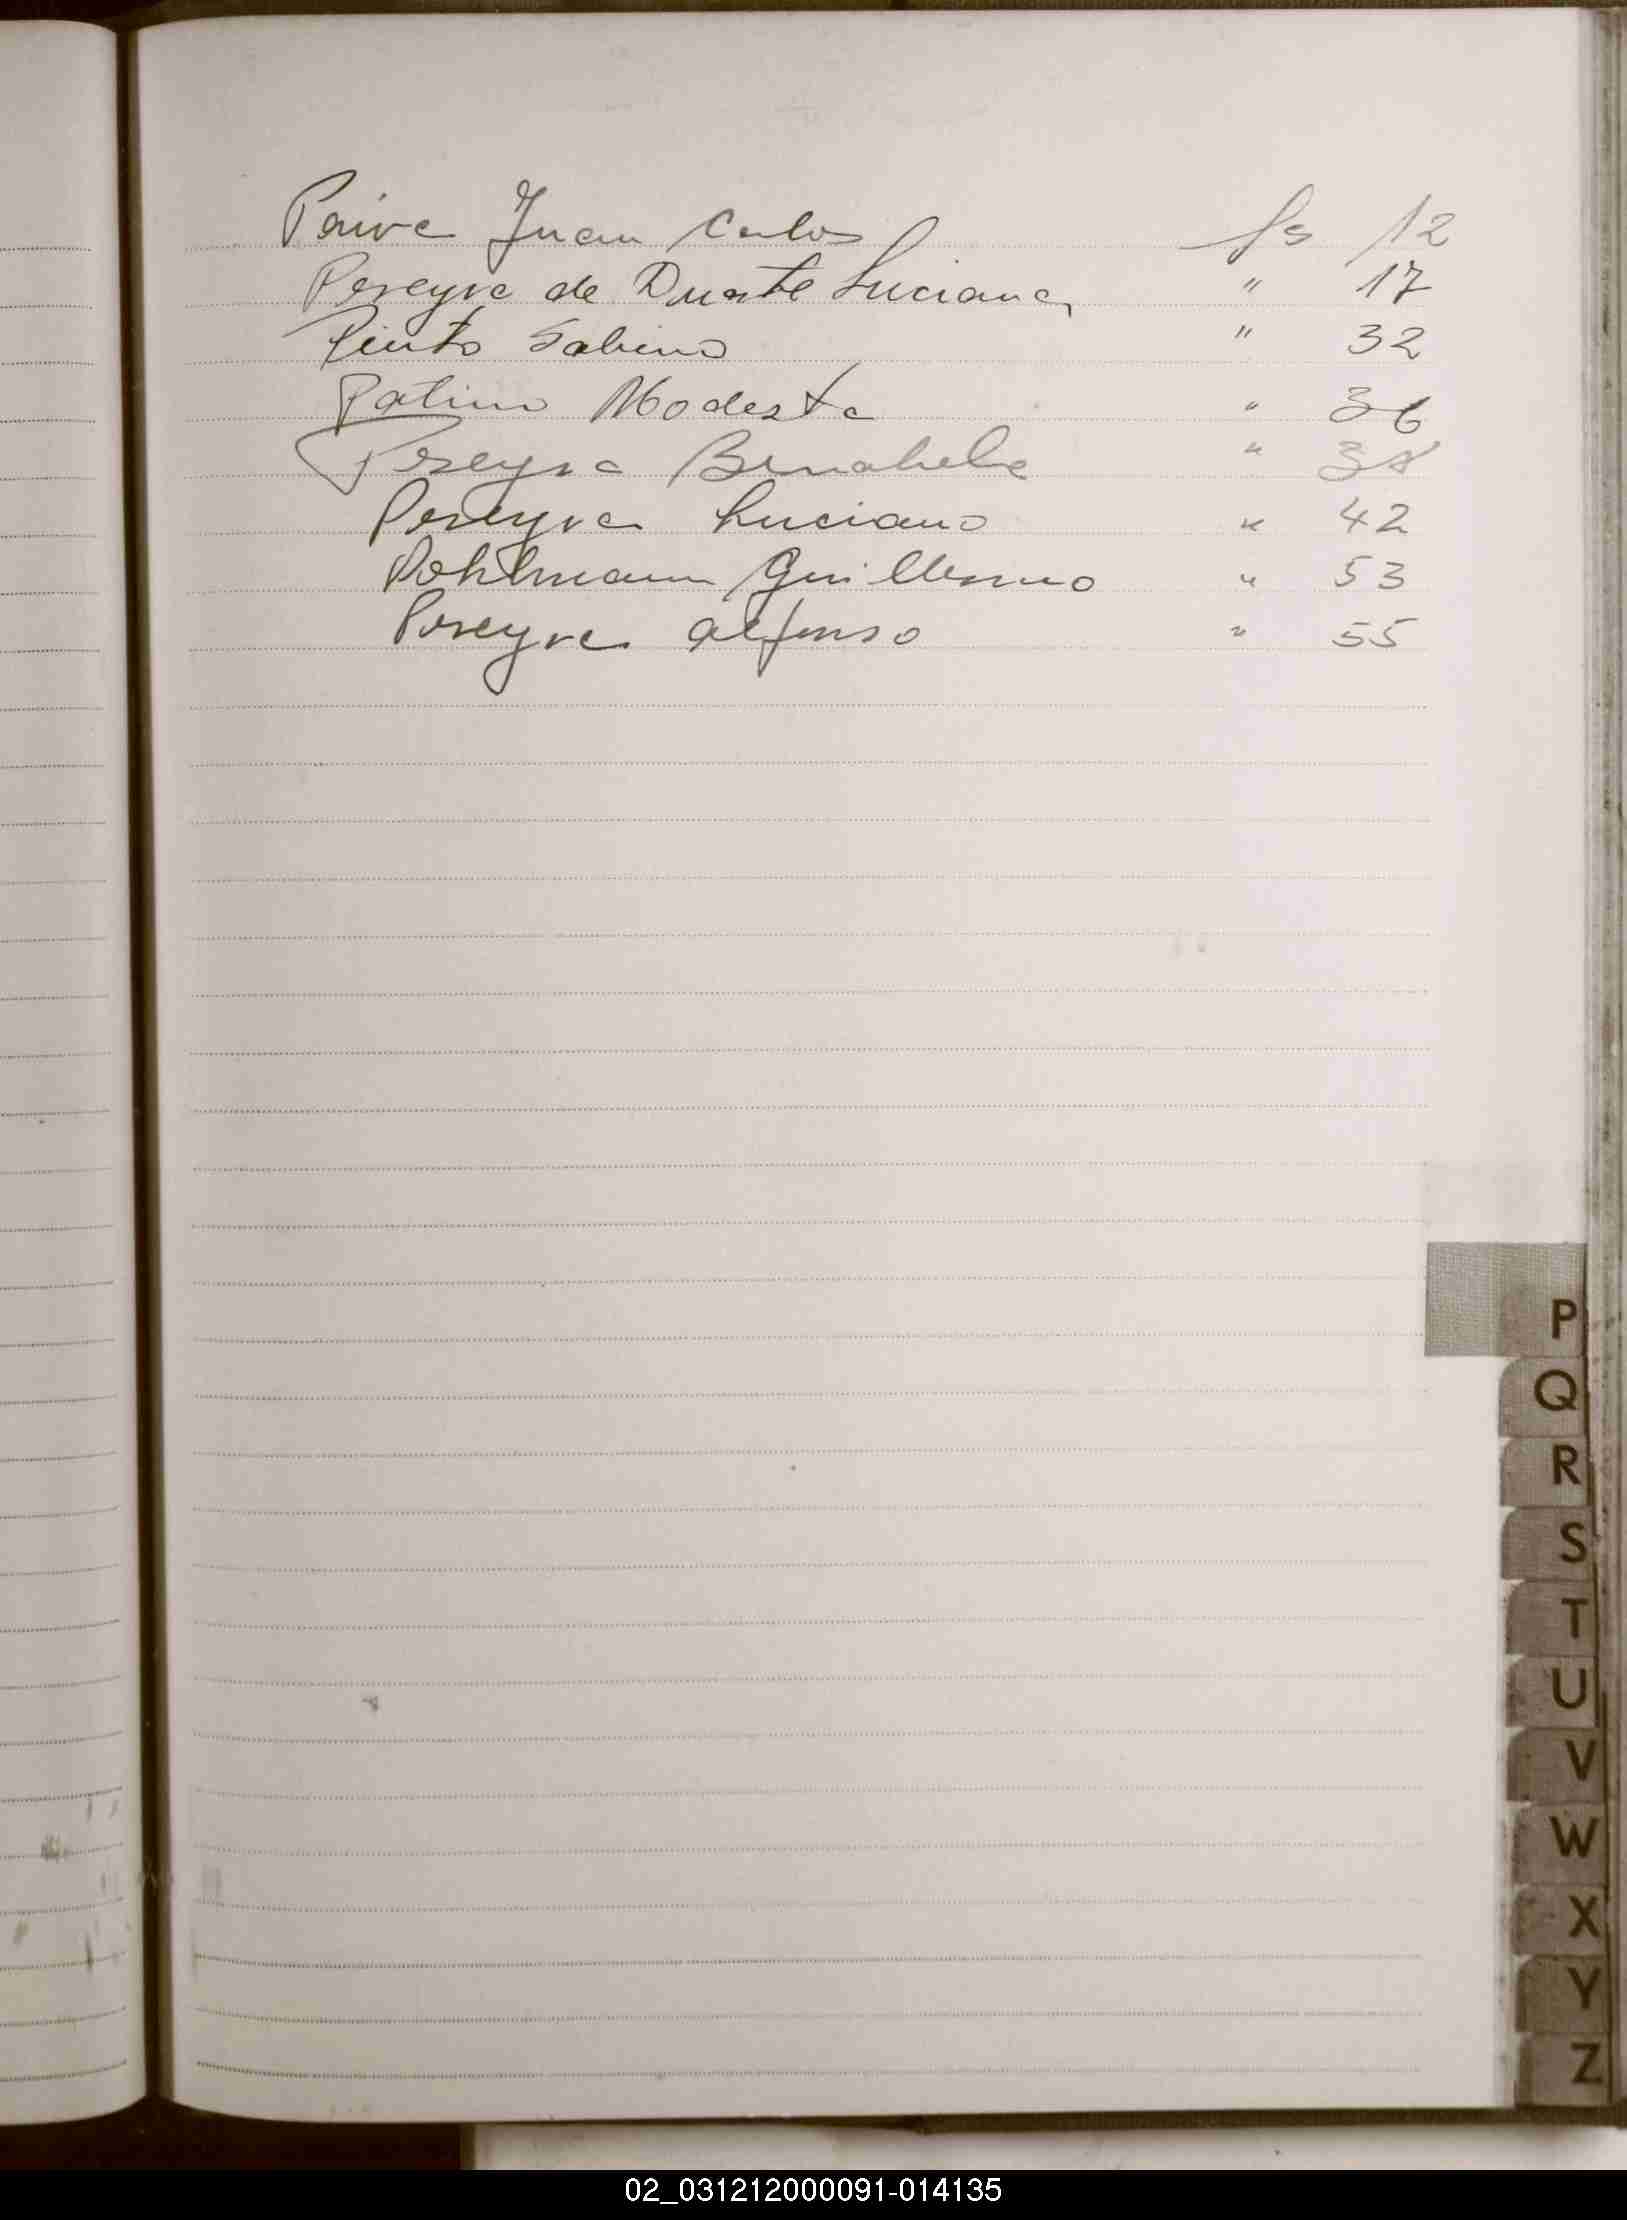 Paiva Juan Carlos fs 12
Pereyra de Duarte Luciana " 17
Pinto Sabino " 32
Patino Modesta " 36
Pereyra " 38
Pereyra Luciano " 42
Pohlmann Guillermo " 53
Pereyra Alfonso " 55
P
Q
R
S
T
U
V
W
X
Y
Z
02_031212000091-014135